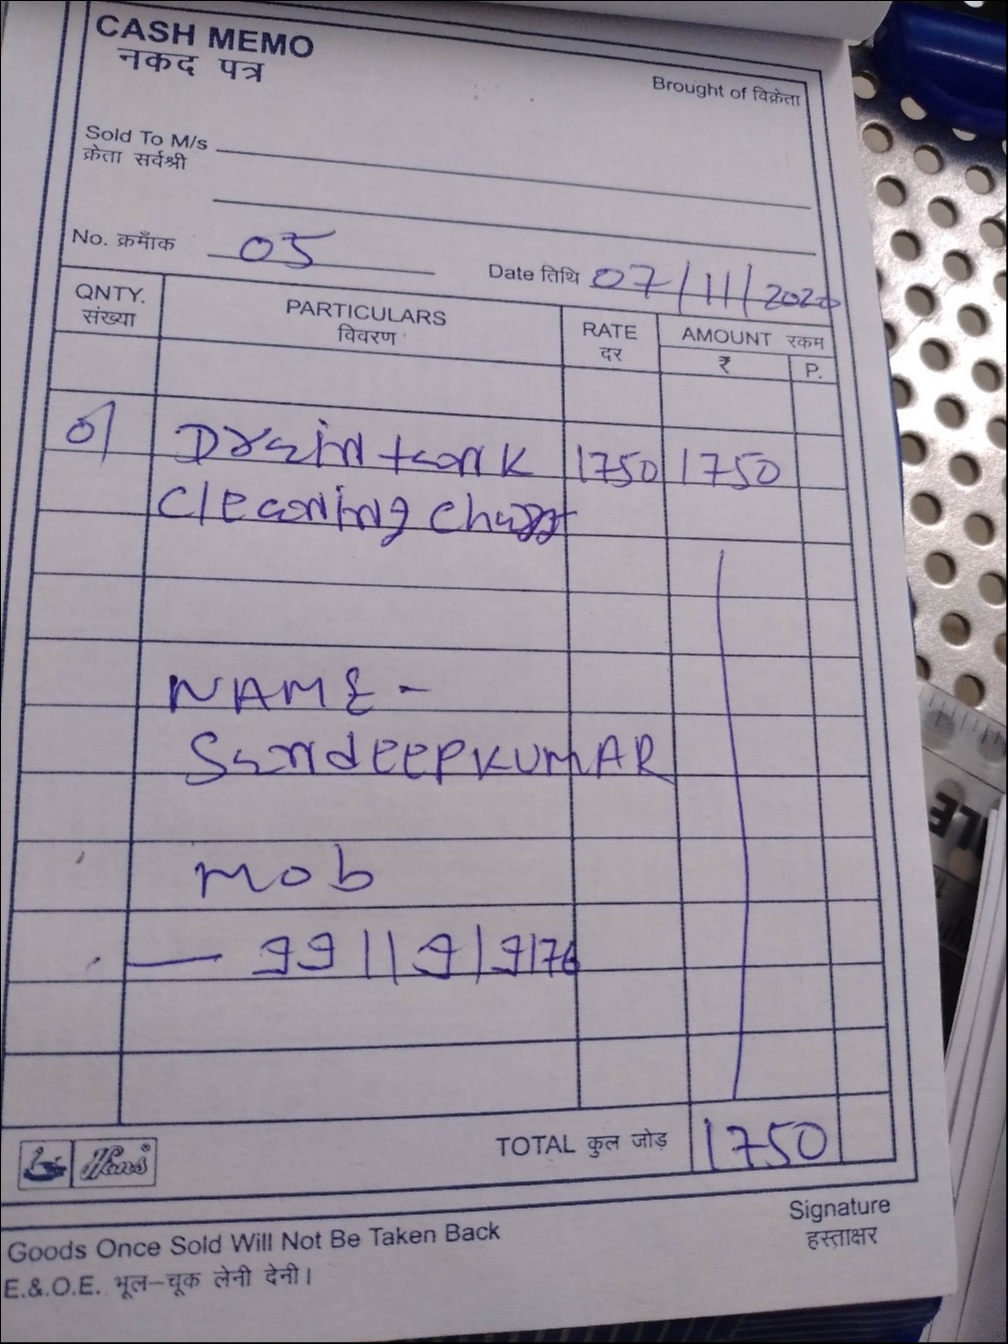 CASH MEMO
नकद पत्र
Brought of विक्रेता
Sold To M/s
क्रेता सर्वश्री
No. क्रमाँक 05
Date तिथि 07/11/2020
QNTY. PARTICULARS RATE AMOUNT रकम
संख्या विवरण दर ₹ P.
01 Drain tank 1750 1750
Cleaning Charge
NAME -
SandeepKUMAR
mob
— 9911919176
TOTAL कुल जोड़ 1750
Hans
Signature
हस्ताक्षर
Goods Once Sold Will Not Be Taken Back
E.&.O.E. भूल-चूक लेनी देनी।